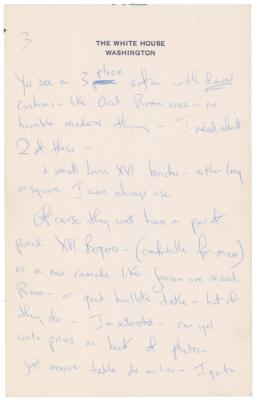 3
THE WHITE HOUSE
WASHINGTON
You see a 3 piece sofa with down
cushions - like Oval Room ones - no
horrible modern thing - I need about
2 of these -
& small Louis XVI benches - either long
or square I can always use
Of course they wont have a pair of
period XVI Bergeres - (comfortable for men)
or a nice console like Jansen one in oval
Room - or good bouillote table - but if
they do - I'm interested - can you
write prices on back of photos -
Just measure table de milieu - I go to